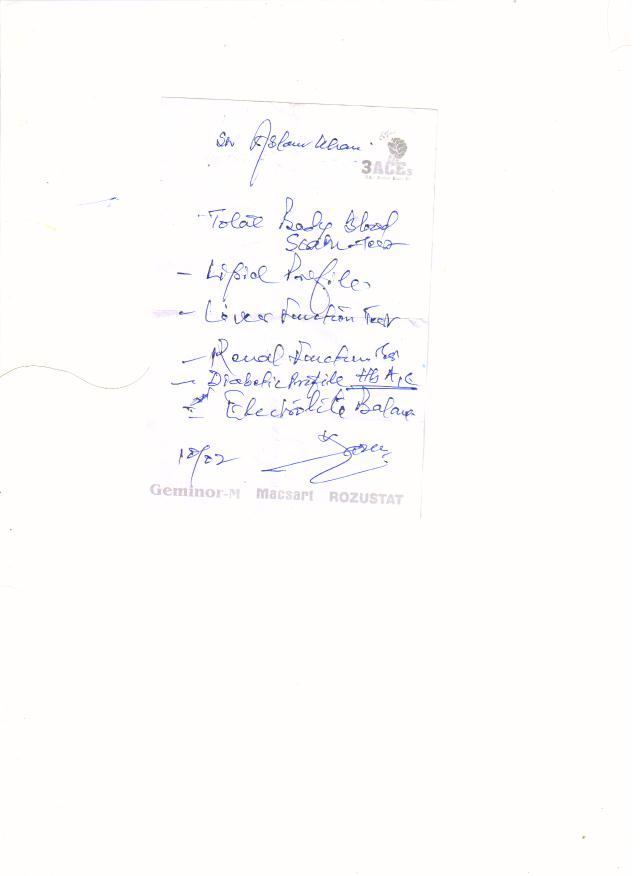 Sr Aslam Khan
3ACEs
Total Body Blood
Scan Test
- Lipid Profile
- Liver Function Test
- Renal Function Test
- Diabetic Profile Hb A1C
- Electrolite Balance
18/02
Geminor-M Macsart ROZUSTAT